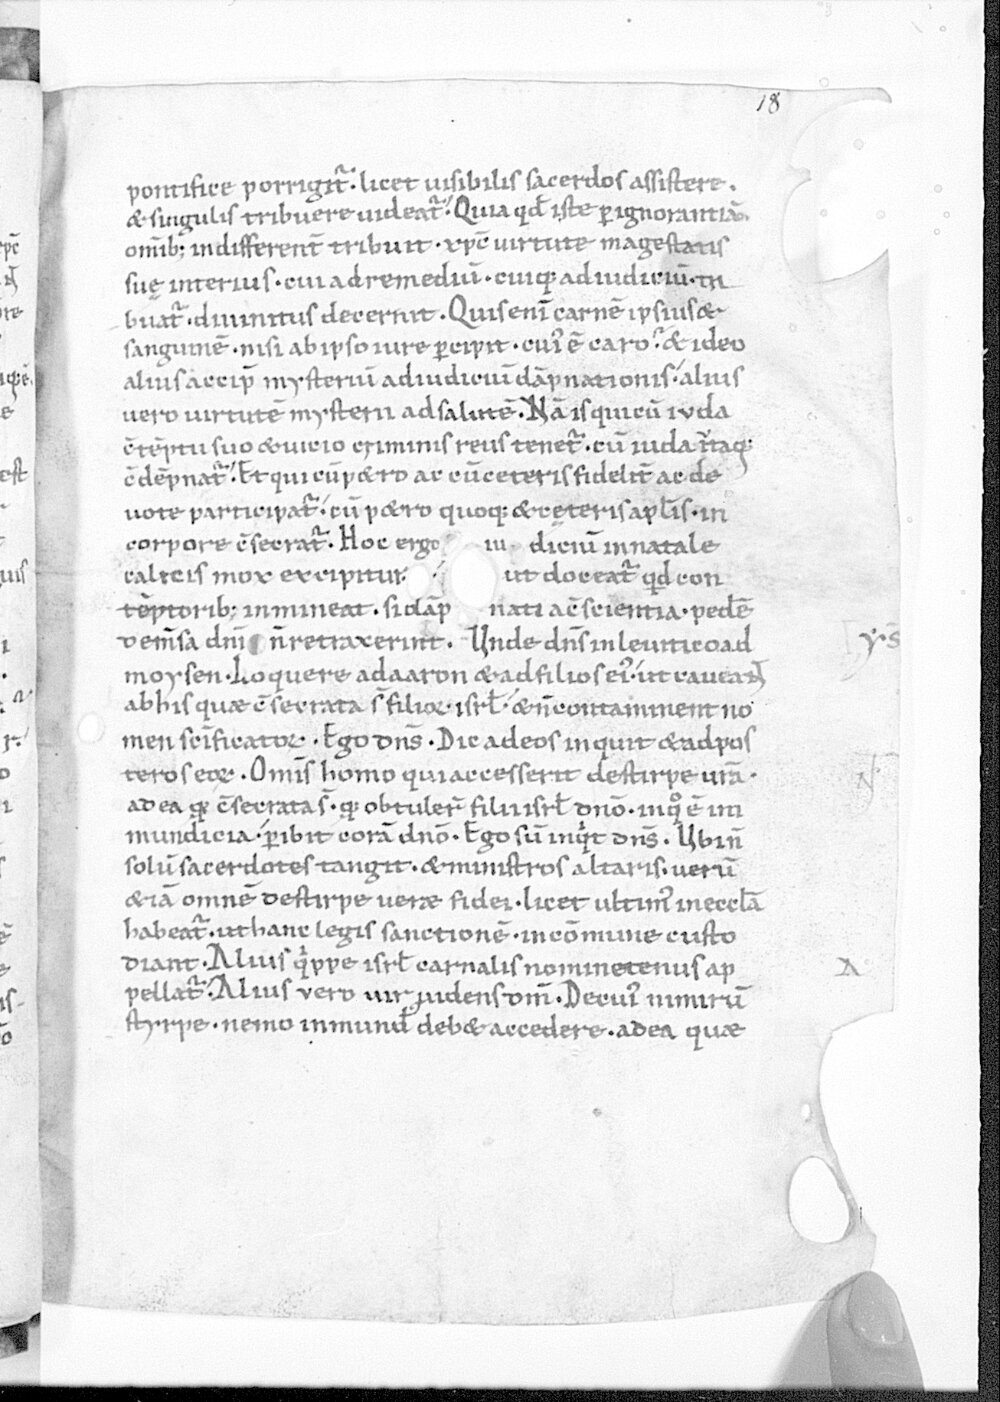 18
pontifice porrigit᷑. licet uisibilis sacerdos assistere.
& singulis tribuere uideat᷑. Quia qđ iste ꝑ ignorantiā
omīb; indifferent̄ tribuit. xp̄c uirtute magestatis
suę interius. cui ad remediū. cuiq; ad iudiciū. tri
buat᷑. diuinitus decernit. Quis enī carnē ipsius &
sanguinē. nisi ab ipso iure ꝑcipit. cuiꝰ ē caro? & ideo
alius accip̄ mysteriū ad iudiciū dāpnationis. alius
uero uirtutē mysterii ad salutē. Nā is qui cū iuda
c̄tēptu suo & uicio criminis reus tenet᷑. cū iuda itaq;
c̄dēpnat᷑. Et qui cū p&ro ac cū ceteris fidelit̄ ac de
uote participat᷑. cū p&ro quoq; & cęteris apl̄is. in
corpore c̄secrat᷑. Hoc ergo iu diciū in natale
calicis mox excipitur. ut doceat᷑ qđ con
tēptorib; inmineat. si dāp nati ac̄ scientia. pedē
de m̄sa dn̄i n̄ retraxerint. Unde dn̄s in leuitico ad
moysen. Loquere ad aaron & ad filios eiꝰ. ut caueant
ab his quæ c̄secrata s̄ filioꝝ isrł. & n̄ contaminent no
men sc̄ificatoꝝ. Ego dn̄s. Dic ad eos inquit & ad pos
teros eoꝝ. Omīs homo qui accesserit de stirpe urā.
ad ea quę c̄secrata s̄. quę obtuler̄ filii isrł dn̄o. in qͦ ē in
mundicia. ꝑibit corā dn̄o. Ego sū inqͥt dn̄s. Ubi n̄
solū sacerdotes tangit. & ministros altaris. uerū
& iā omnē de stirpe ueræ fidei. licet ultimꝰ in eccl̄a
habeat᷑. ut hanc legis sanctionē. in cōmune custo
diant. Alius qͥppe isrł carnalis nominetenus ap
pellat᷑. Alius uero uir uidens dm̄. De cuiꝰ nimirū
styrpe. nemo inmundꝰ deb& accedere. ad ea quæ